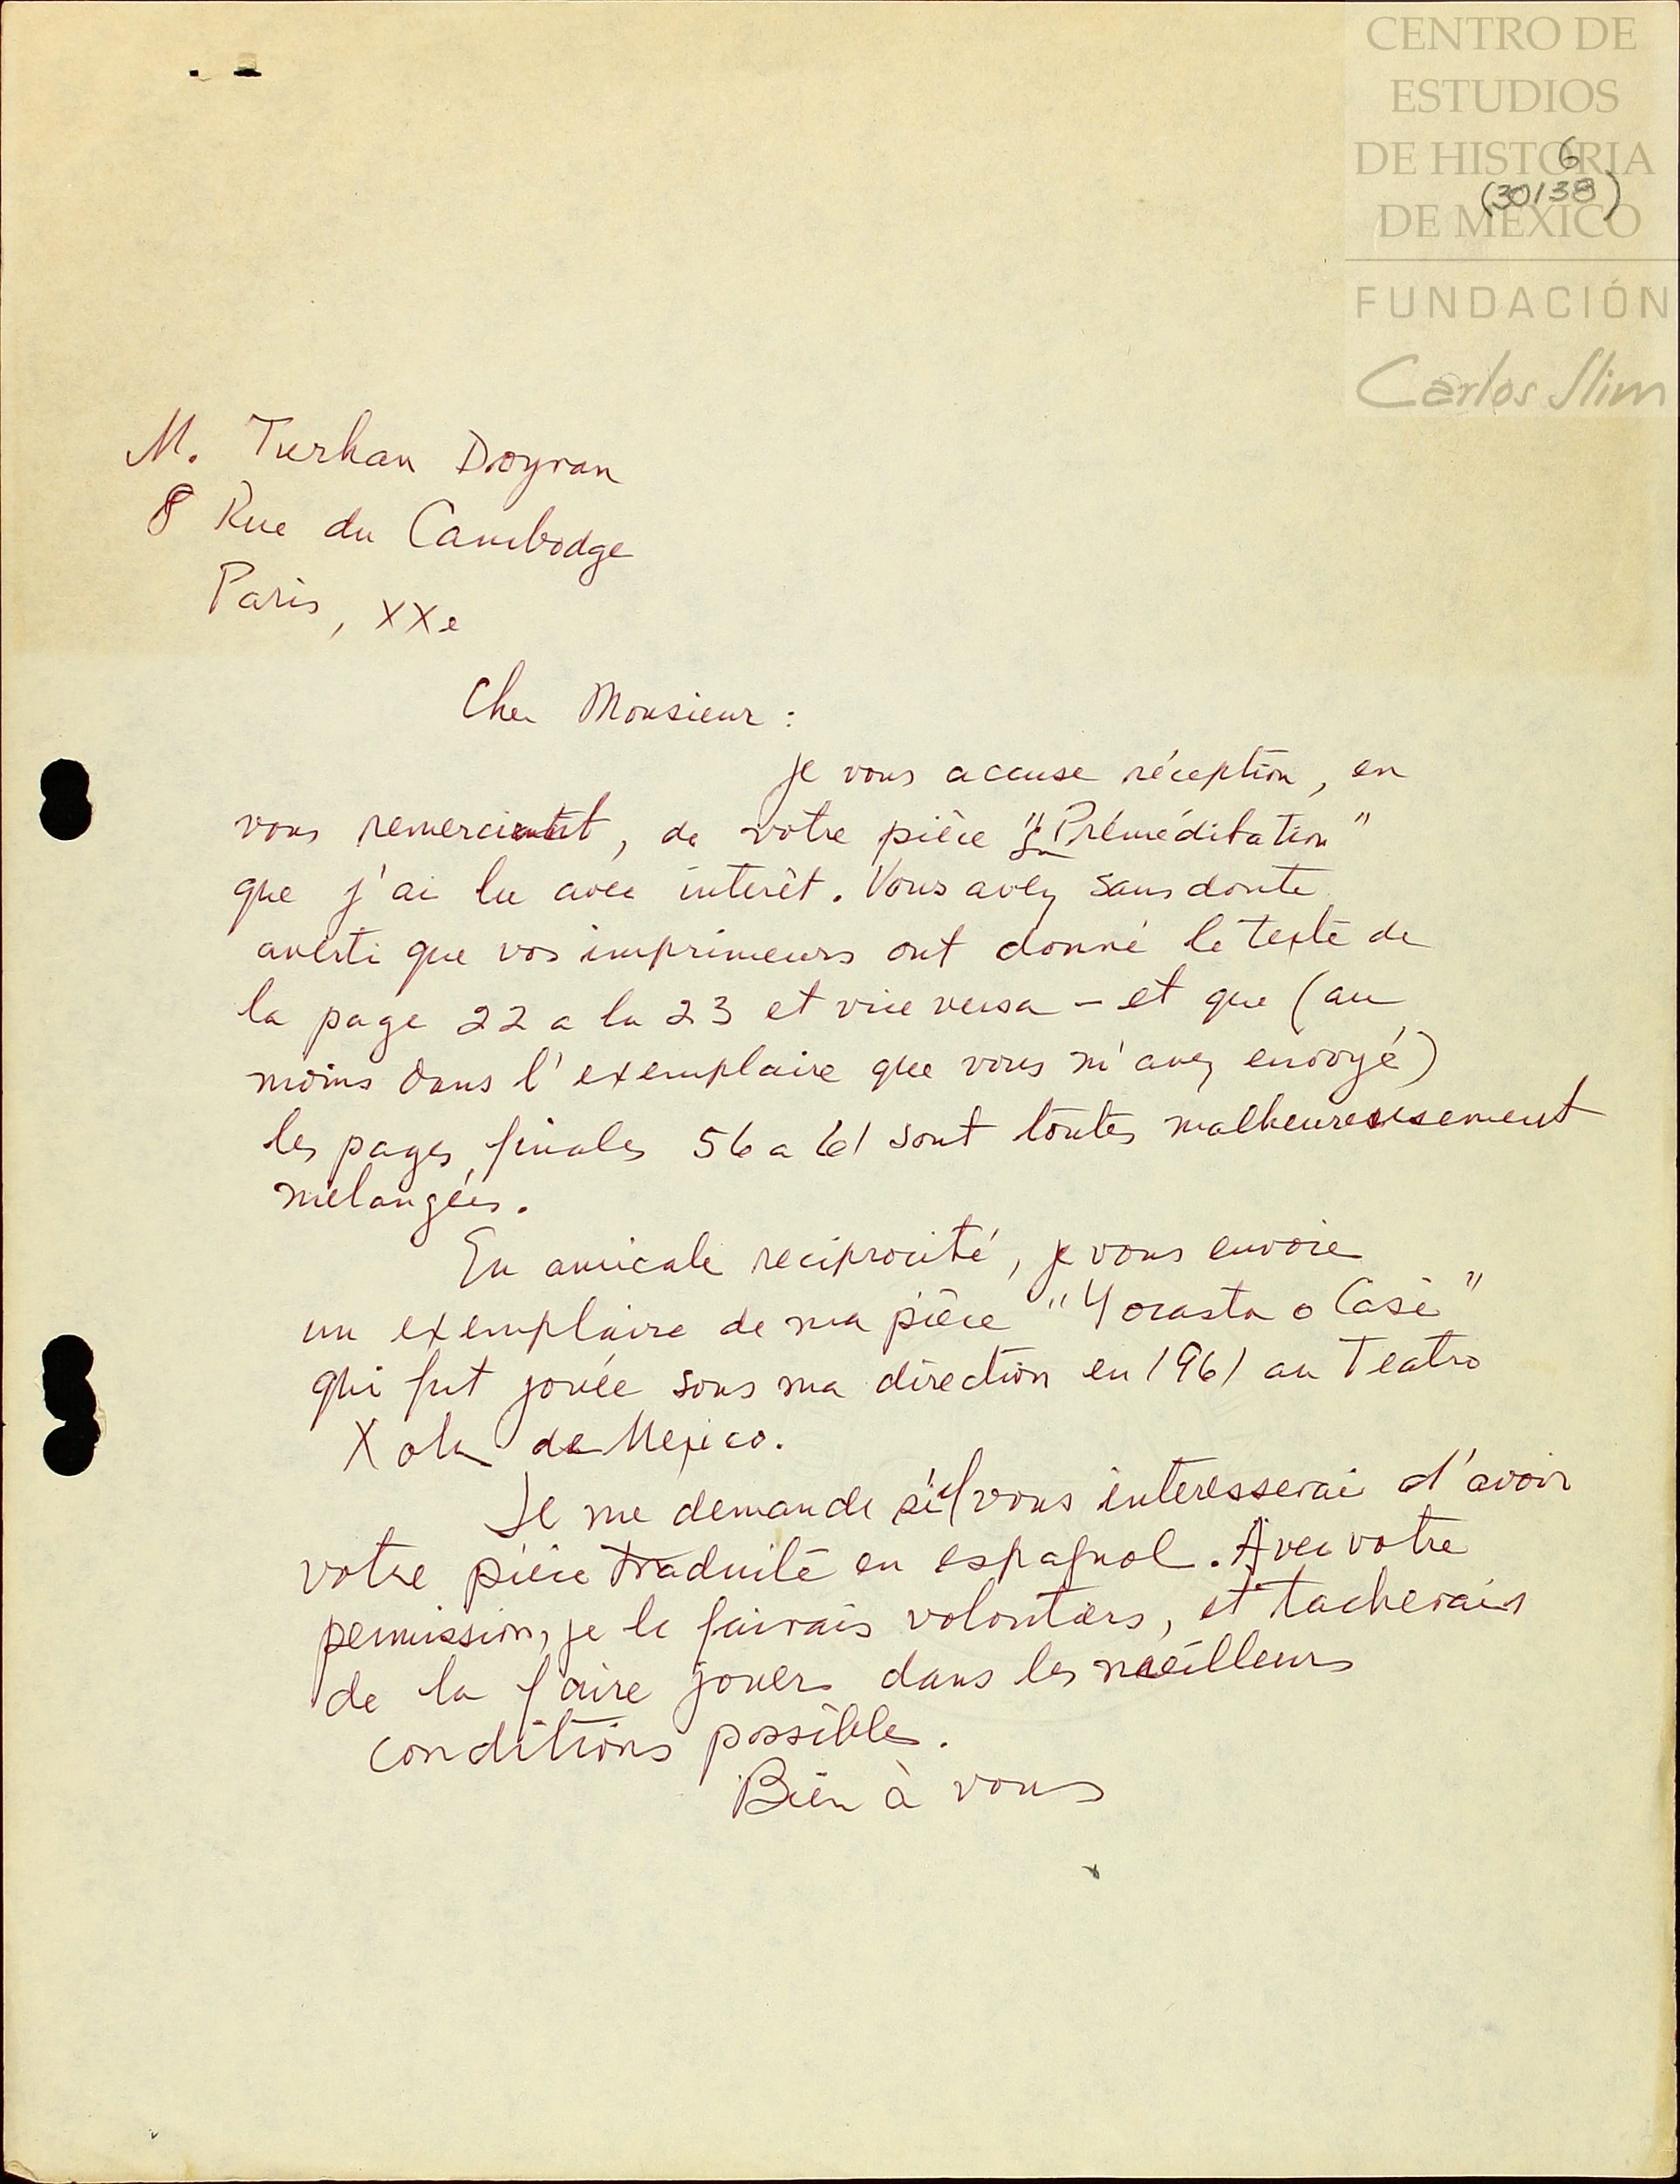 CENTRO DE
ESTUDIOS
DE HISTORIA
DE MÉXICO
FUNDACIÓN
Carlos Slim
6
(30138)
M. Turhan Doyran
8 Rue du Cambodge
Paris, XXe
Cher Monsieur :
je vous accuse réception, en
vous remerciant, de votre pièce "La Préméditation"
que j'ai lu avec interêt. Vous avez sans doute
averti que vos imprimeurs ont donné le texte de
la page 22 a la 23 et vice versa – et que (au
moins dans l'exemplaire que vous m'avez envoyé)
les pages finales 56 a 61 sont toutes malheureusement
mélangées.
En amicale reciprocité, je vous envoie
un exemplaire de ma pièce "Yocasta o Casi"
qui fut jouée sous ma direction en 1961 au Teatro
Xola de Mexico.
Je me demande s'il vous interesserai d'avoir
votre pièce traduite en espagnol. Avec votre
permission, je le fairais volontiers, et tacherais
de la faire jouer dans les meilleurs
conditions possibles.
Bien à vous